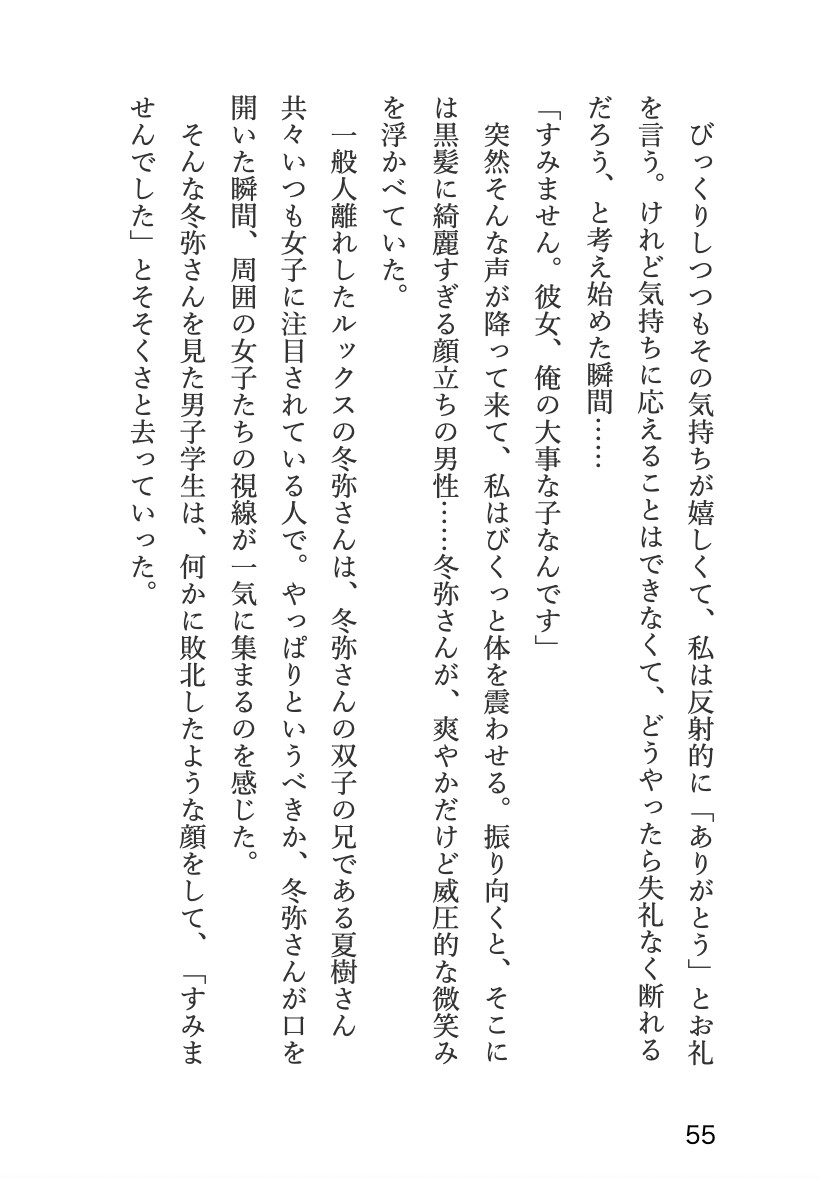 びっくりしつつもその気持ちが嬉しくて、私は反射的に「ありがとう」とお礼
を言う。けれど気持ちに応えることはできなくて、どうやったら失礼なく断れる
だろう、と考え始めた瞬間……
「すみません。彼女、俺の大事な子なんです」
　突然そんな声が降って来て、私はびくっと体を震わせる。振り向くと、そこに
は黒髪に綺麗すぎる顔立ちの男性……冬弥さんが、爽やかだけど威圧的な微笑み
を浮かべていた。
　一般人離れしたルックスの冬弥さんは、冬弥さんの双子の兄である夏樹さん
共々いつも女子に注目されている人で。やっぱりというべきか、冬弥さんが口を
開いた瞬間、周囲の女子たちの視線が一気に集まるのを感じた。
　そんな冬弥さんを見た男子学生は、何かに敗北したような顔をして、「すみま
せんでした」とそそくさと去っていった。
55